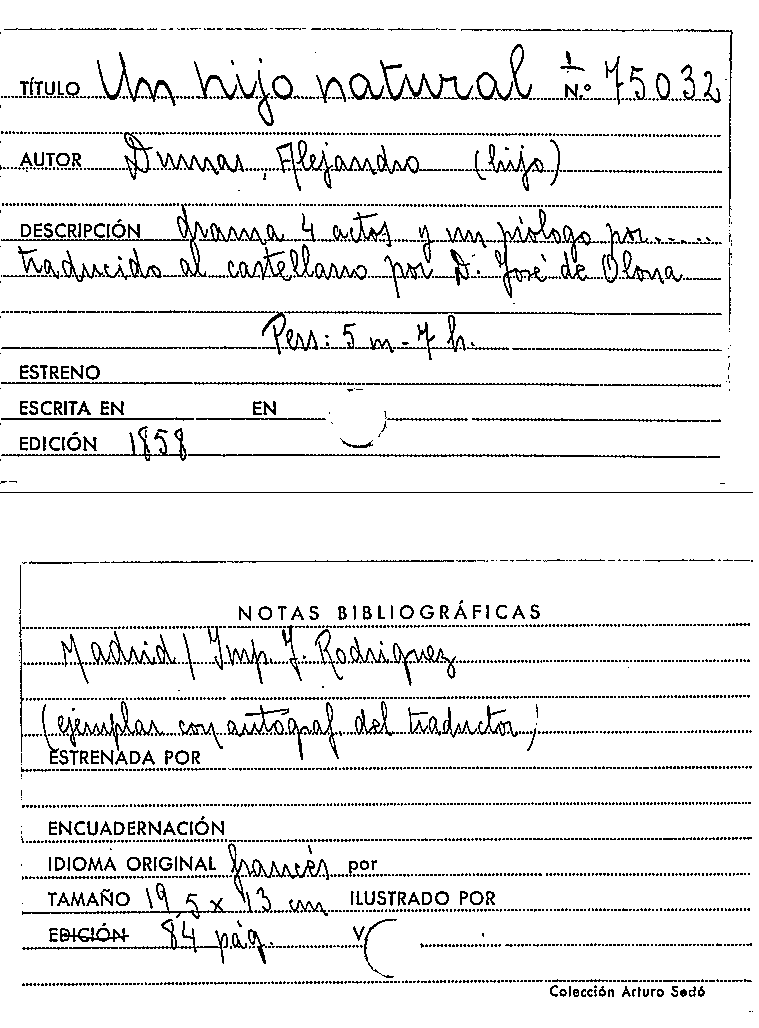 TÍTULO Un hijo natural 1 N.º 75032
AUTOR Dumas, Alejandro (hijo)
DESCRIPCIÓN drama 4 actos y un prólogo por.....
traducido al castellano por D. José de Olona
Pers: 5 m - 7 h.
ESTRENO
ESCRITA EN EN
EDICIÓN 1858
NOTAS BIBLIOGRÁFICAS
Madrid / Imp. J. Rodriguez
(ejemplar con autograf. del traductor)
ESTRENADA POR
ENCUADERNACIÓN
IDIOMA ORIGINAL francés por
TAMAÑO 19,5 x 13 cm ILUSTRADO POR
EDICIÓN 84 pág. V
Colección Arturo Sedó